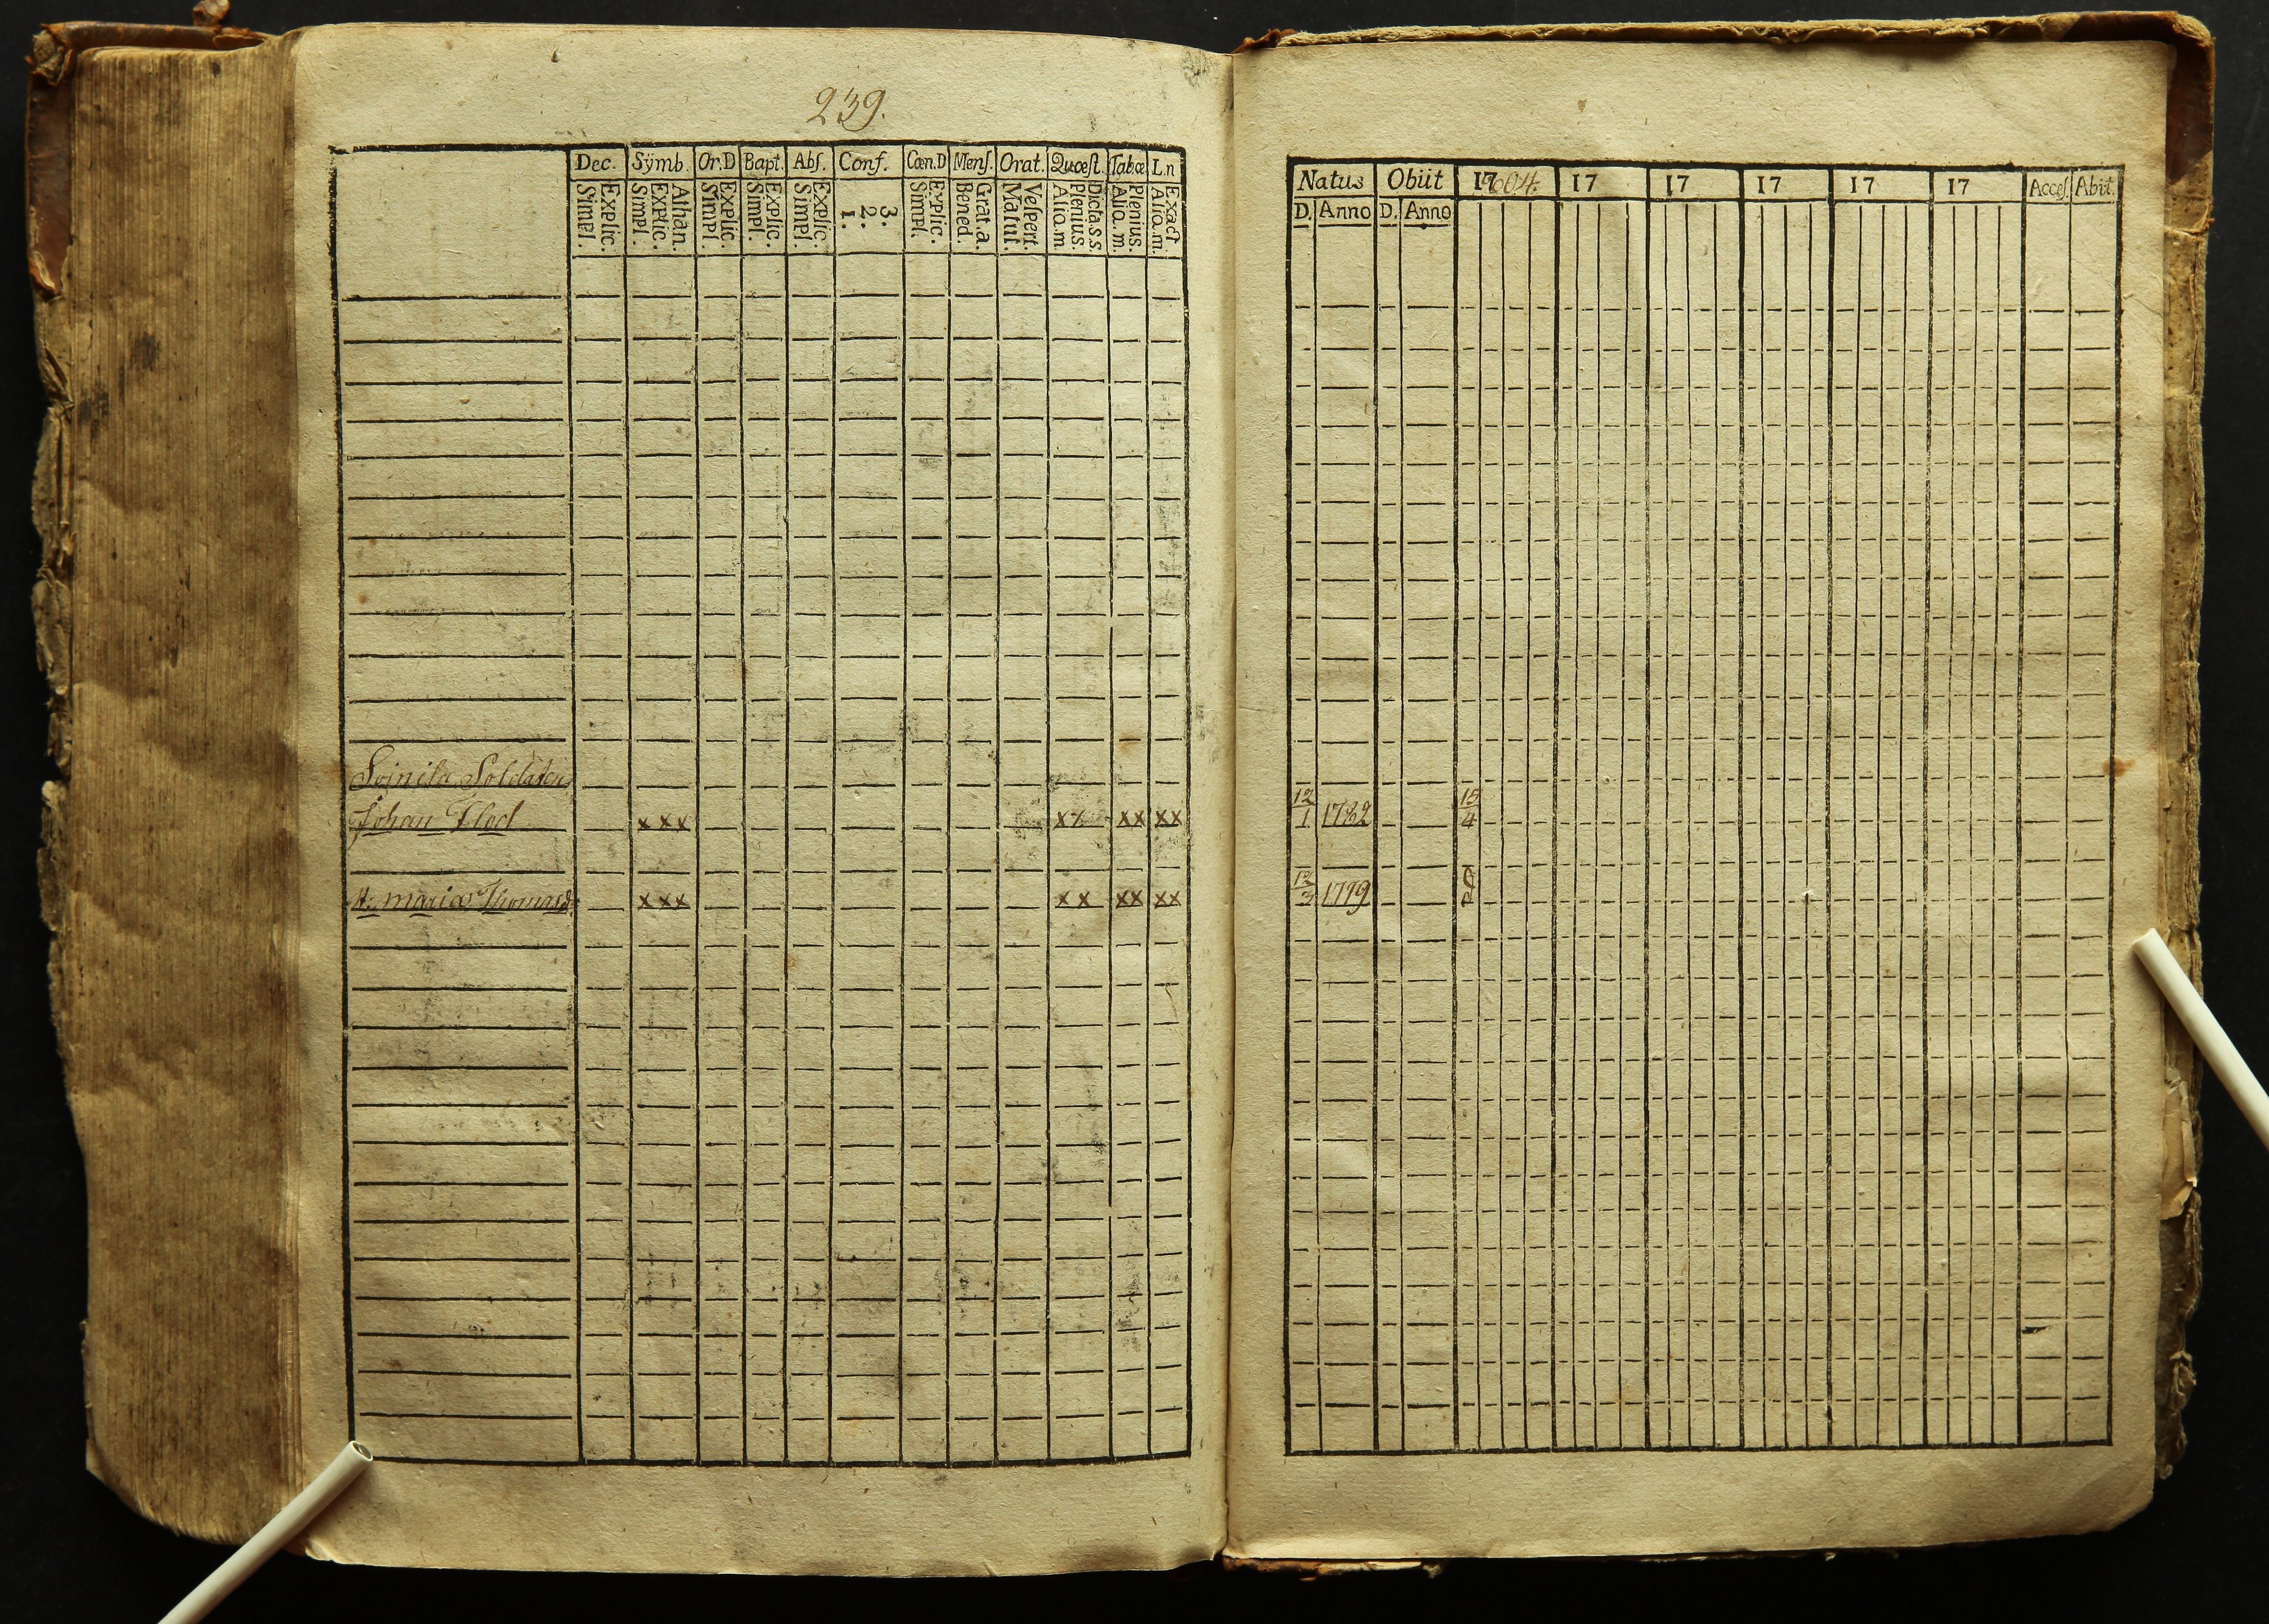 239.
Dec. Sÿmb. Or.D Bapt. Abſ. Conf. Cœn.D Menſ. Orat. Quœſt. Tab.œ L.n
Explic. Simpl.
Athan. Explic. Simpl.
Explic. Simpl.
Explic. Simpl.
Explic. Simpl.
3. 2. 1.
Explic. Simpl.
Grat.a. Bened.
Veſpert. Matut.
Dicta.s.s. Plenius. Aliq.m
Plenius. Aliq.m.
Exact Aliq.m.
Soinila Soldaten
Johan Flod xxx xx xx xx
H. Maria Thomasd: xxx xx xx xx
Natus Obiit 1804. 17 17 17 17 17 Acceſ. Abiit.
D. Anno D. Anno
12/1 1782 15/4
12/3 1779